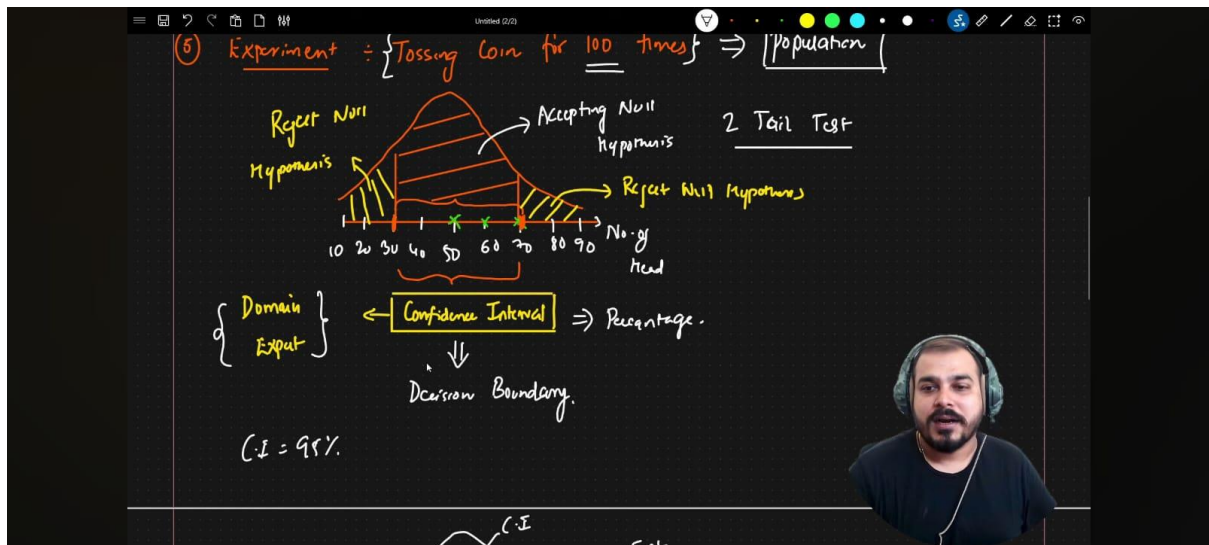 Untitled (2/2)
⑤ Experiment ÷ {Tossing Coin for 100 times} ⇒ Population
Reject Null
Hypothesis
Accepting Null
Hypothesis
2 Tail Test
Reject Null Hypothesis
10 20 30 40 50 60 70 80 90 No. of
Head
{ Domain
Expert }
← Confidence Interval ⇒ Percentage.
⇓
Decision Boundary.
C.I = 95%.
C.I